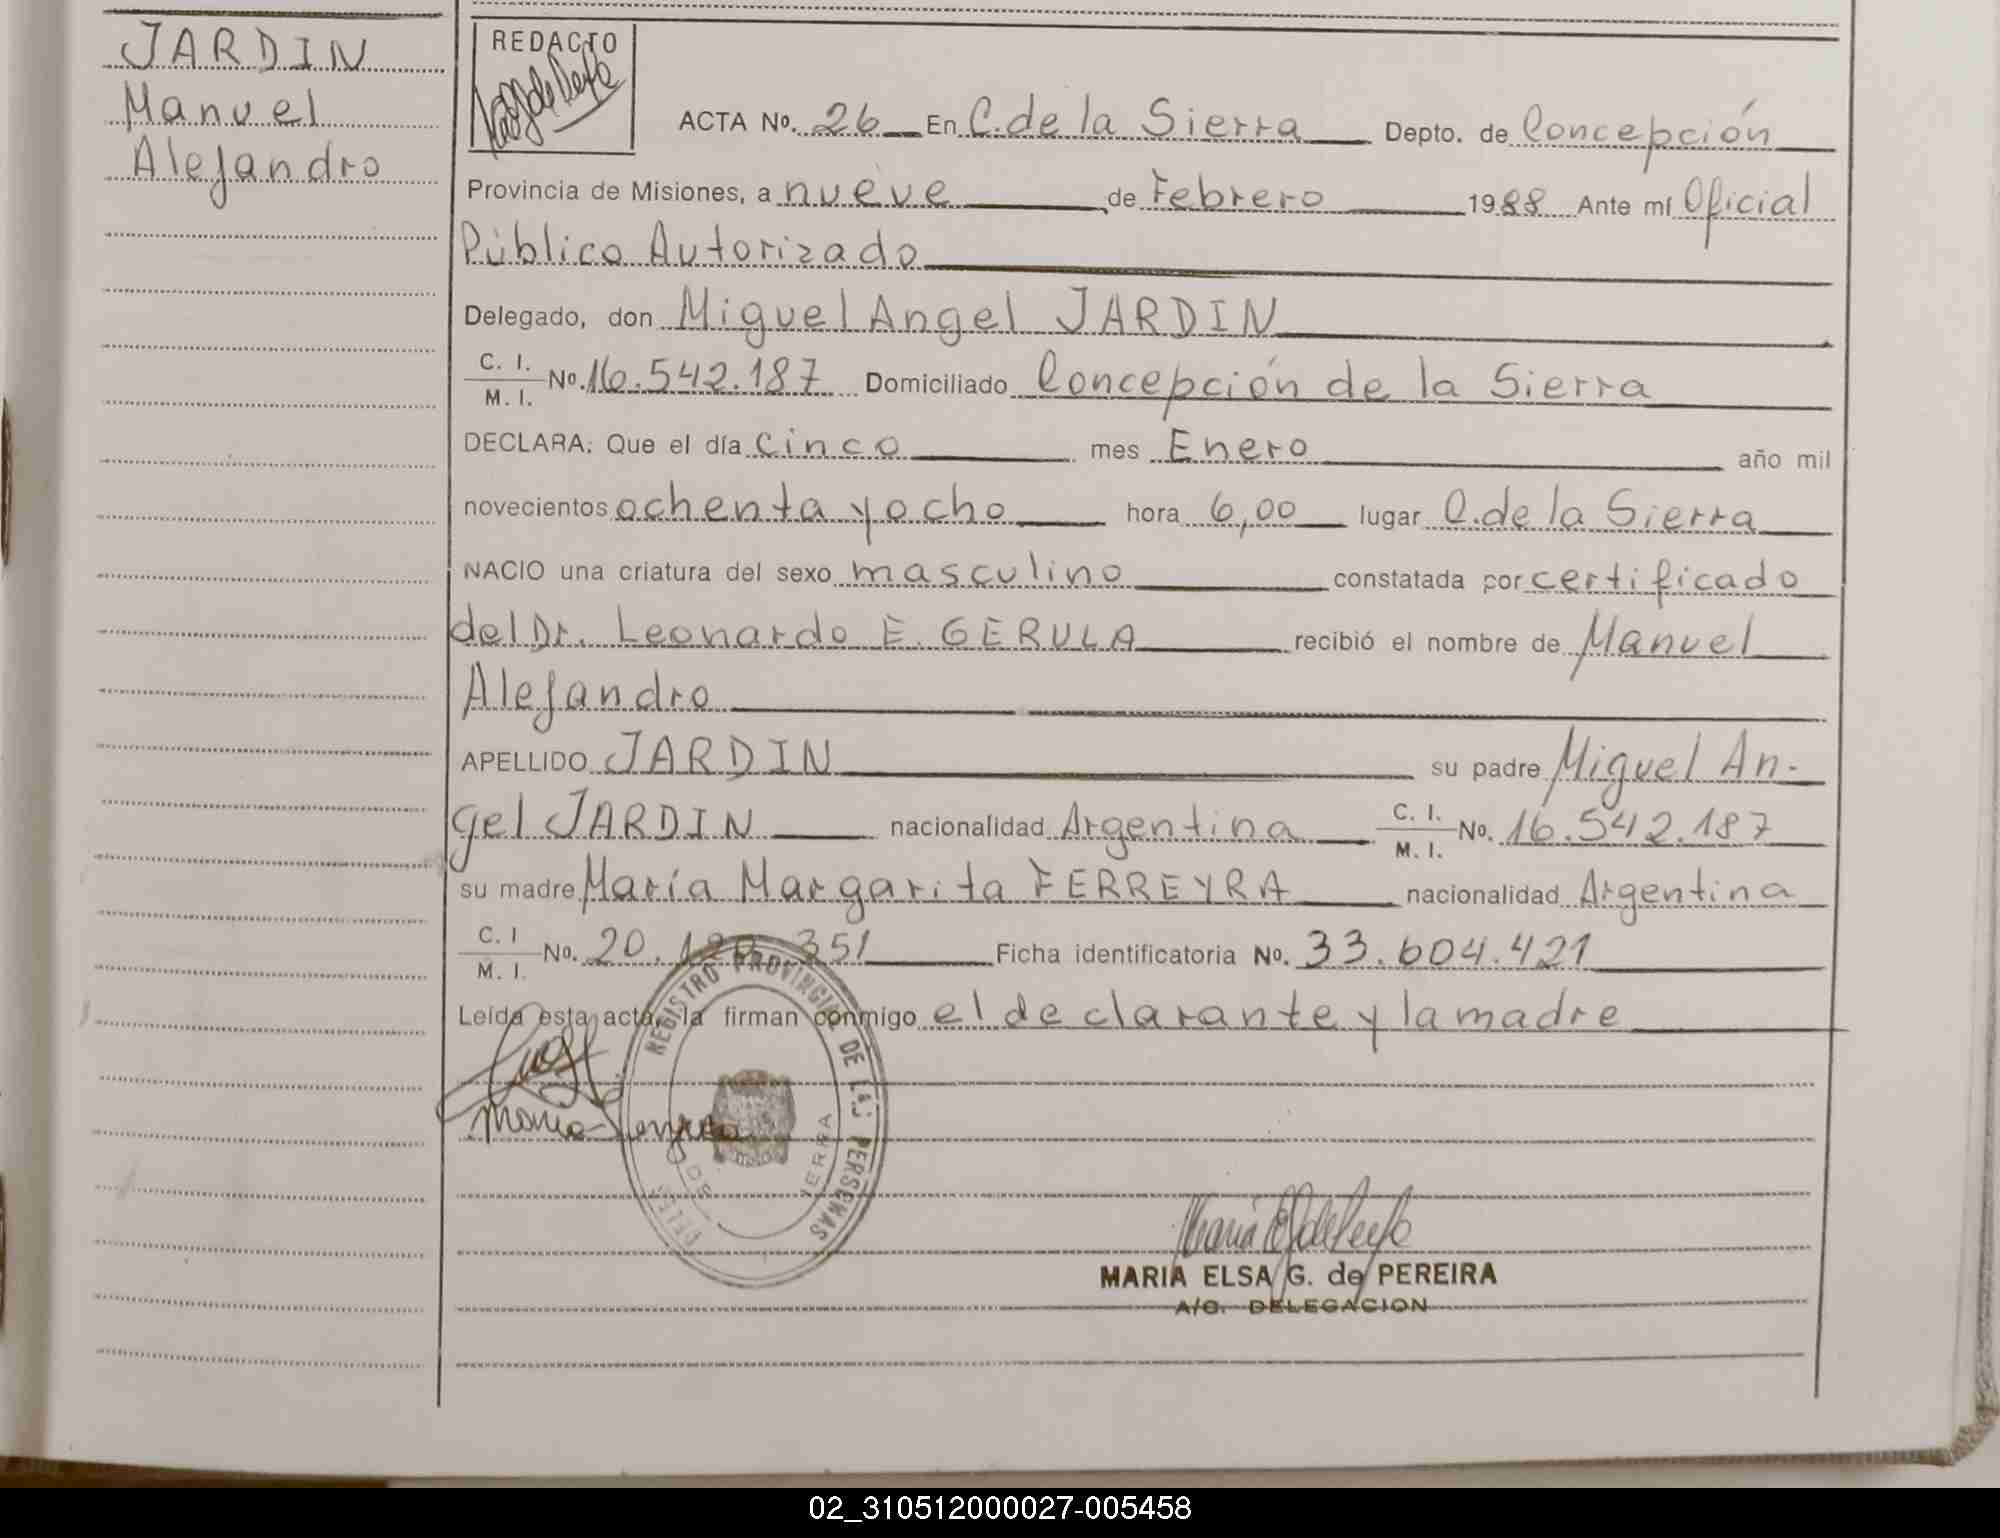 JARDIN
Manuel
Alejandro
REDACTO
ACTA Nº. 26 En C. de la Sierra Depto. de Concepción
Provincia de Misiones, a nueve de Febrero 1988 Ante mí Oficial
Público Autorizado
Delegado, don Miguel Angel JARDIN
C. I. M. I. Nº. 16.542.187 Domiciliado Concepción de la Sierra
DECLARA: Que el día cinco mes Enero año mil
novecientos ochenta y ocho hora 6,00 lugar C. de la Sierra
NACIO una criatura del sexo masculino constatada por certificado
del Dr. Leonardo E. GERULA recibió el nombre de Manuel
Alejandro
APELLIDO JARDIN su padre Miguel An-
gel JARDIN nacionalidad Argentina C. I. M. I. Nº. 16.542.187
su madre María Margarita FERREYRA nacionalidad Argentina
C. I M. I. Nº. 20. 351 Ficha identificatoria Nº. 33.604.421
Leída esta acta, la firman conmigo el declarante y la madre
REGISTRO PROVINCIAL DE LAS PERSONAS
IERRA
MARIA ELSA G. de PEREIRA
A/C. DELEGACION
02_310512000027-005458